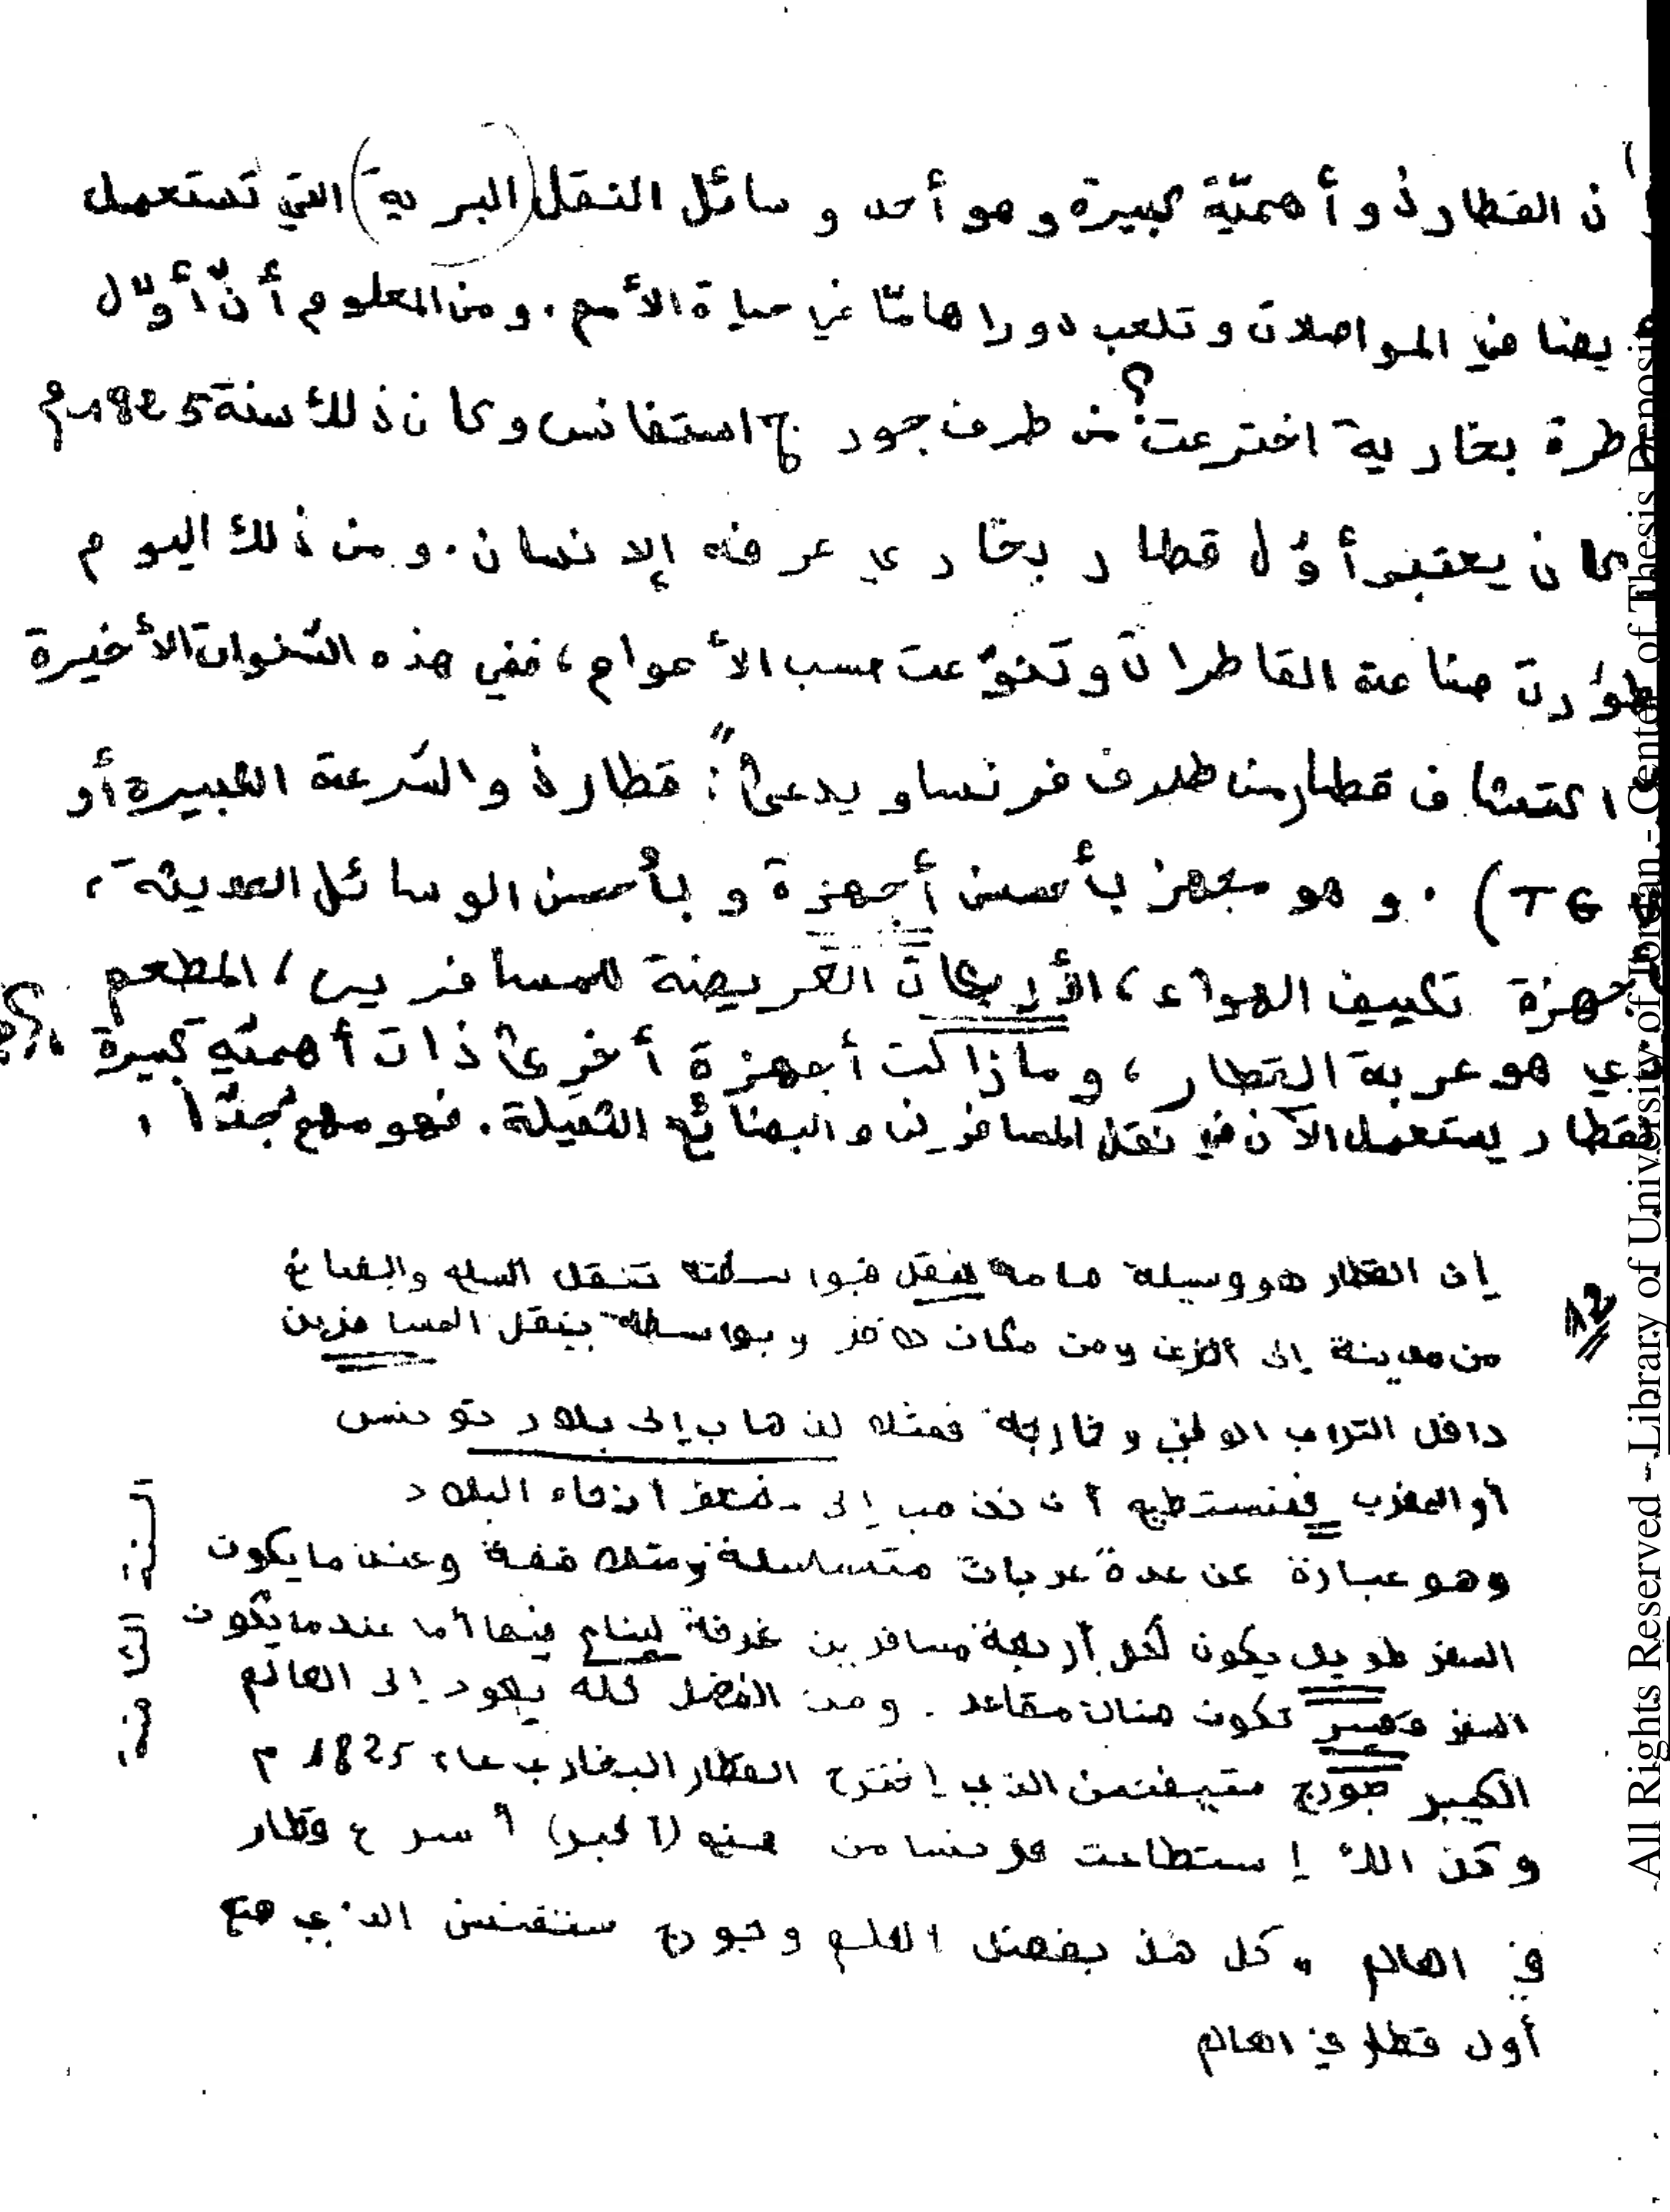 ن القطار ذو أهمّيّة كبيرة وهو أحد وسائل النقل (البرية) التي تستعمل
أيضا في المواصلات وتلعب دورا هامّا في حياة الأمم. ومن المعلوم أنّ أوّل
طرة بخارية اخترعت ؟ من طرف جورج استفانس وكان ذلك سنة 1825م
كان يعتبر أوّل قطار بخاري عرفه إلانسان. ومن ذلك اليوم
طوّرت صناعة القاطرات وتنوّعت حسب الأعوام، ففي هذه السّنوات الأخيرة
اكتشاف قطار من طرف فرنسا ويدعى: "قطار ذو السّرعة الكبيرة أو
TG). وهو مجهز بأحسن أجهزة وبأحسن الوسائل الحديثة،
جهزة تكييف الهواء، الأريكات العريضة للمسافرين، المطعم
ذي هو عربة القطار، ومازالت أجهزة أخرى ذات أهميّة كبيرة ؟
لقطار يستعمل الآن في نقل المسافرين والبضائع الثقيلة. فهو مهم جدّا.
12
إن القطار هو وسيلة هامة لنقل فبواسطته تنقل السلع والبضائع
من مدينة إلى أخرى ومن مكان لآخر وبواسطة ينقل المسافرين
داخل التراب الوطني وخارجه فمثلا لذهاب إلى بلاد تونس
أو المغرب فنستطيع أن نذهب إلى مختلف أنحاء البلاد
وهو عبارة عن عدة عربات متسلسلة ومتلاصقة وعندما يكون
السفر طويل يكون لكل أربعة مسافرين غرفة لينام فيها أما عندما يكون
السفر قصير تكون هناك مقاعد. ومن الفضل كله يعود إلى العالم
الكبير جورج ستيفنسن الذي إخترع القطار البخاري عام 1825 م
وكذالك إستطاعت فرنسا من صنع (أكبر) أسرع قطار
في العالم. كل هذ بفضل العلم وجورج ستفنسن الذي صنع
أول قطار في العالم
السنة الثامنة
All Rights Reserved - Library of University of Jordan - Center of Thesis Deposit